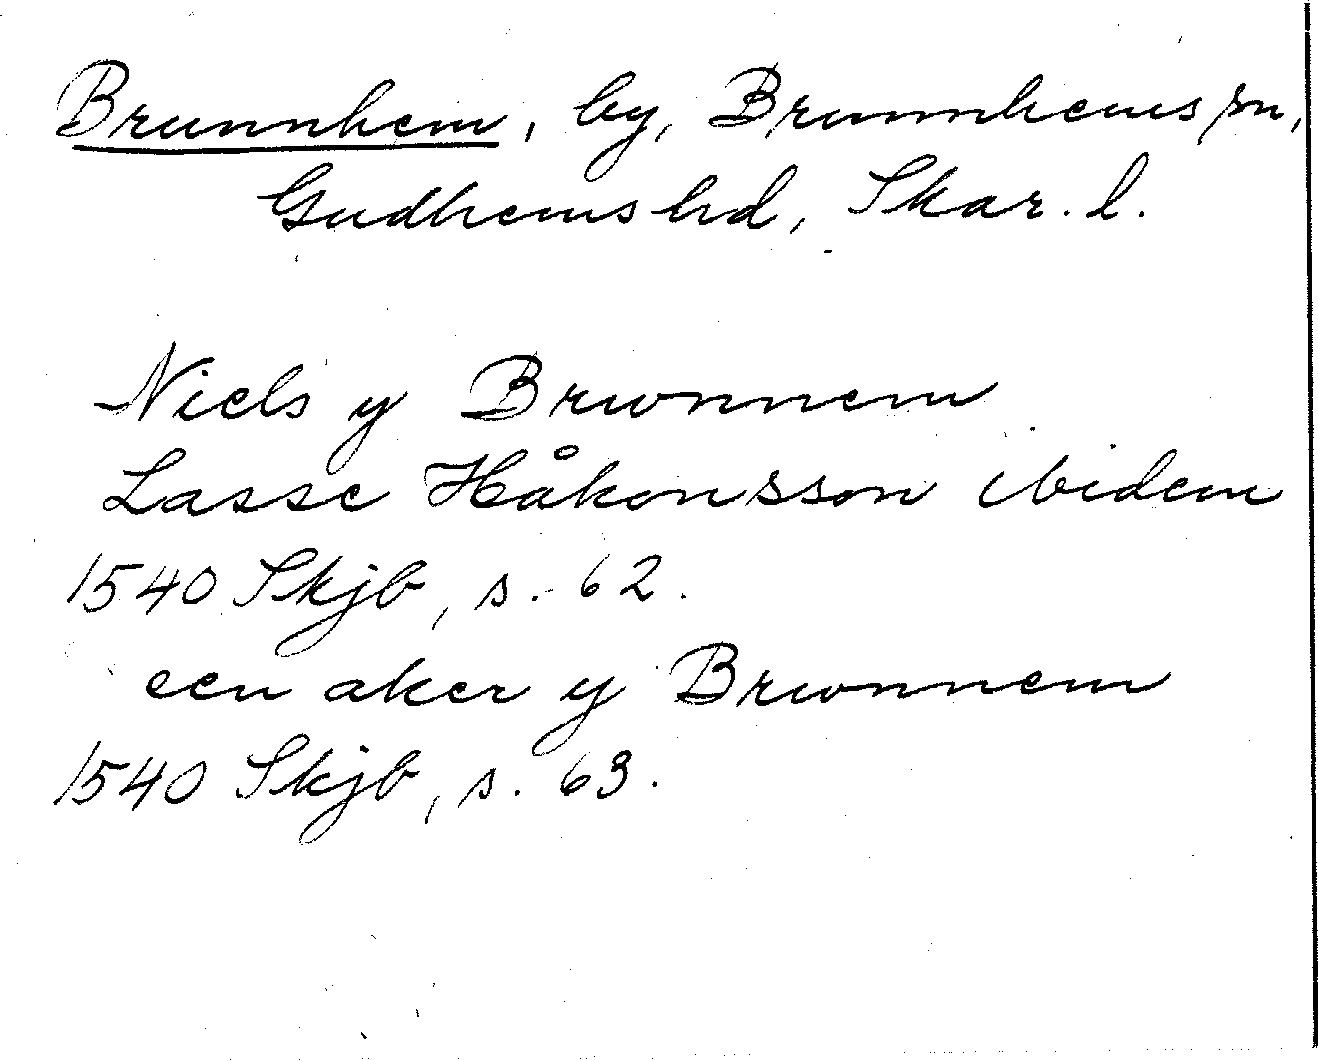 Brunnhem, by, Brunnhems sn,
Gudhems hd, Skar. l.
Niels y Brwnnem
Lasse Håkonsson ibidem
1540 Skjb, s. 62.
een aker y Brwnnem
1540 Skjb, s. 63.